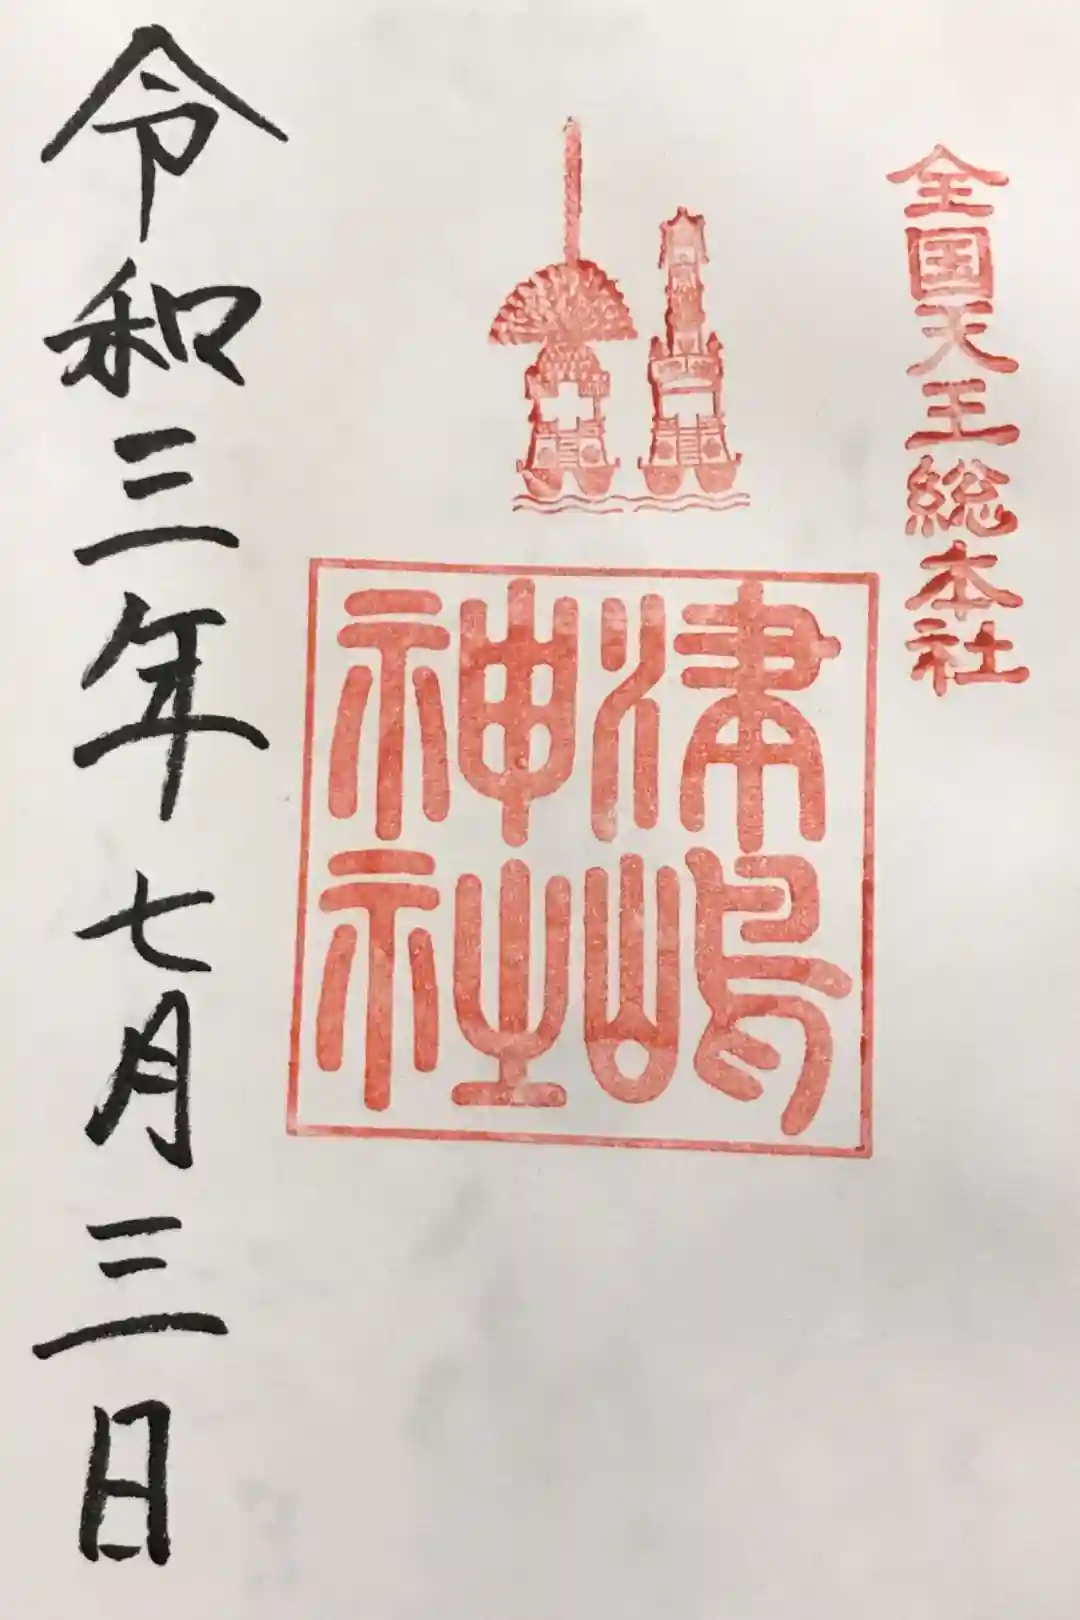 全国天王総本社
津嶋
神社
令和三年七月三日